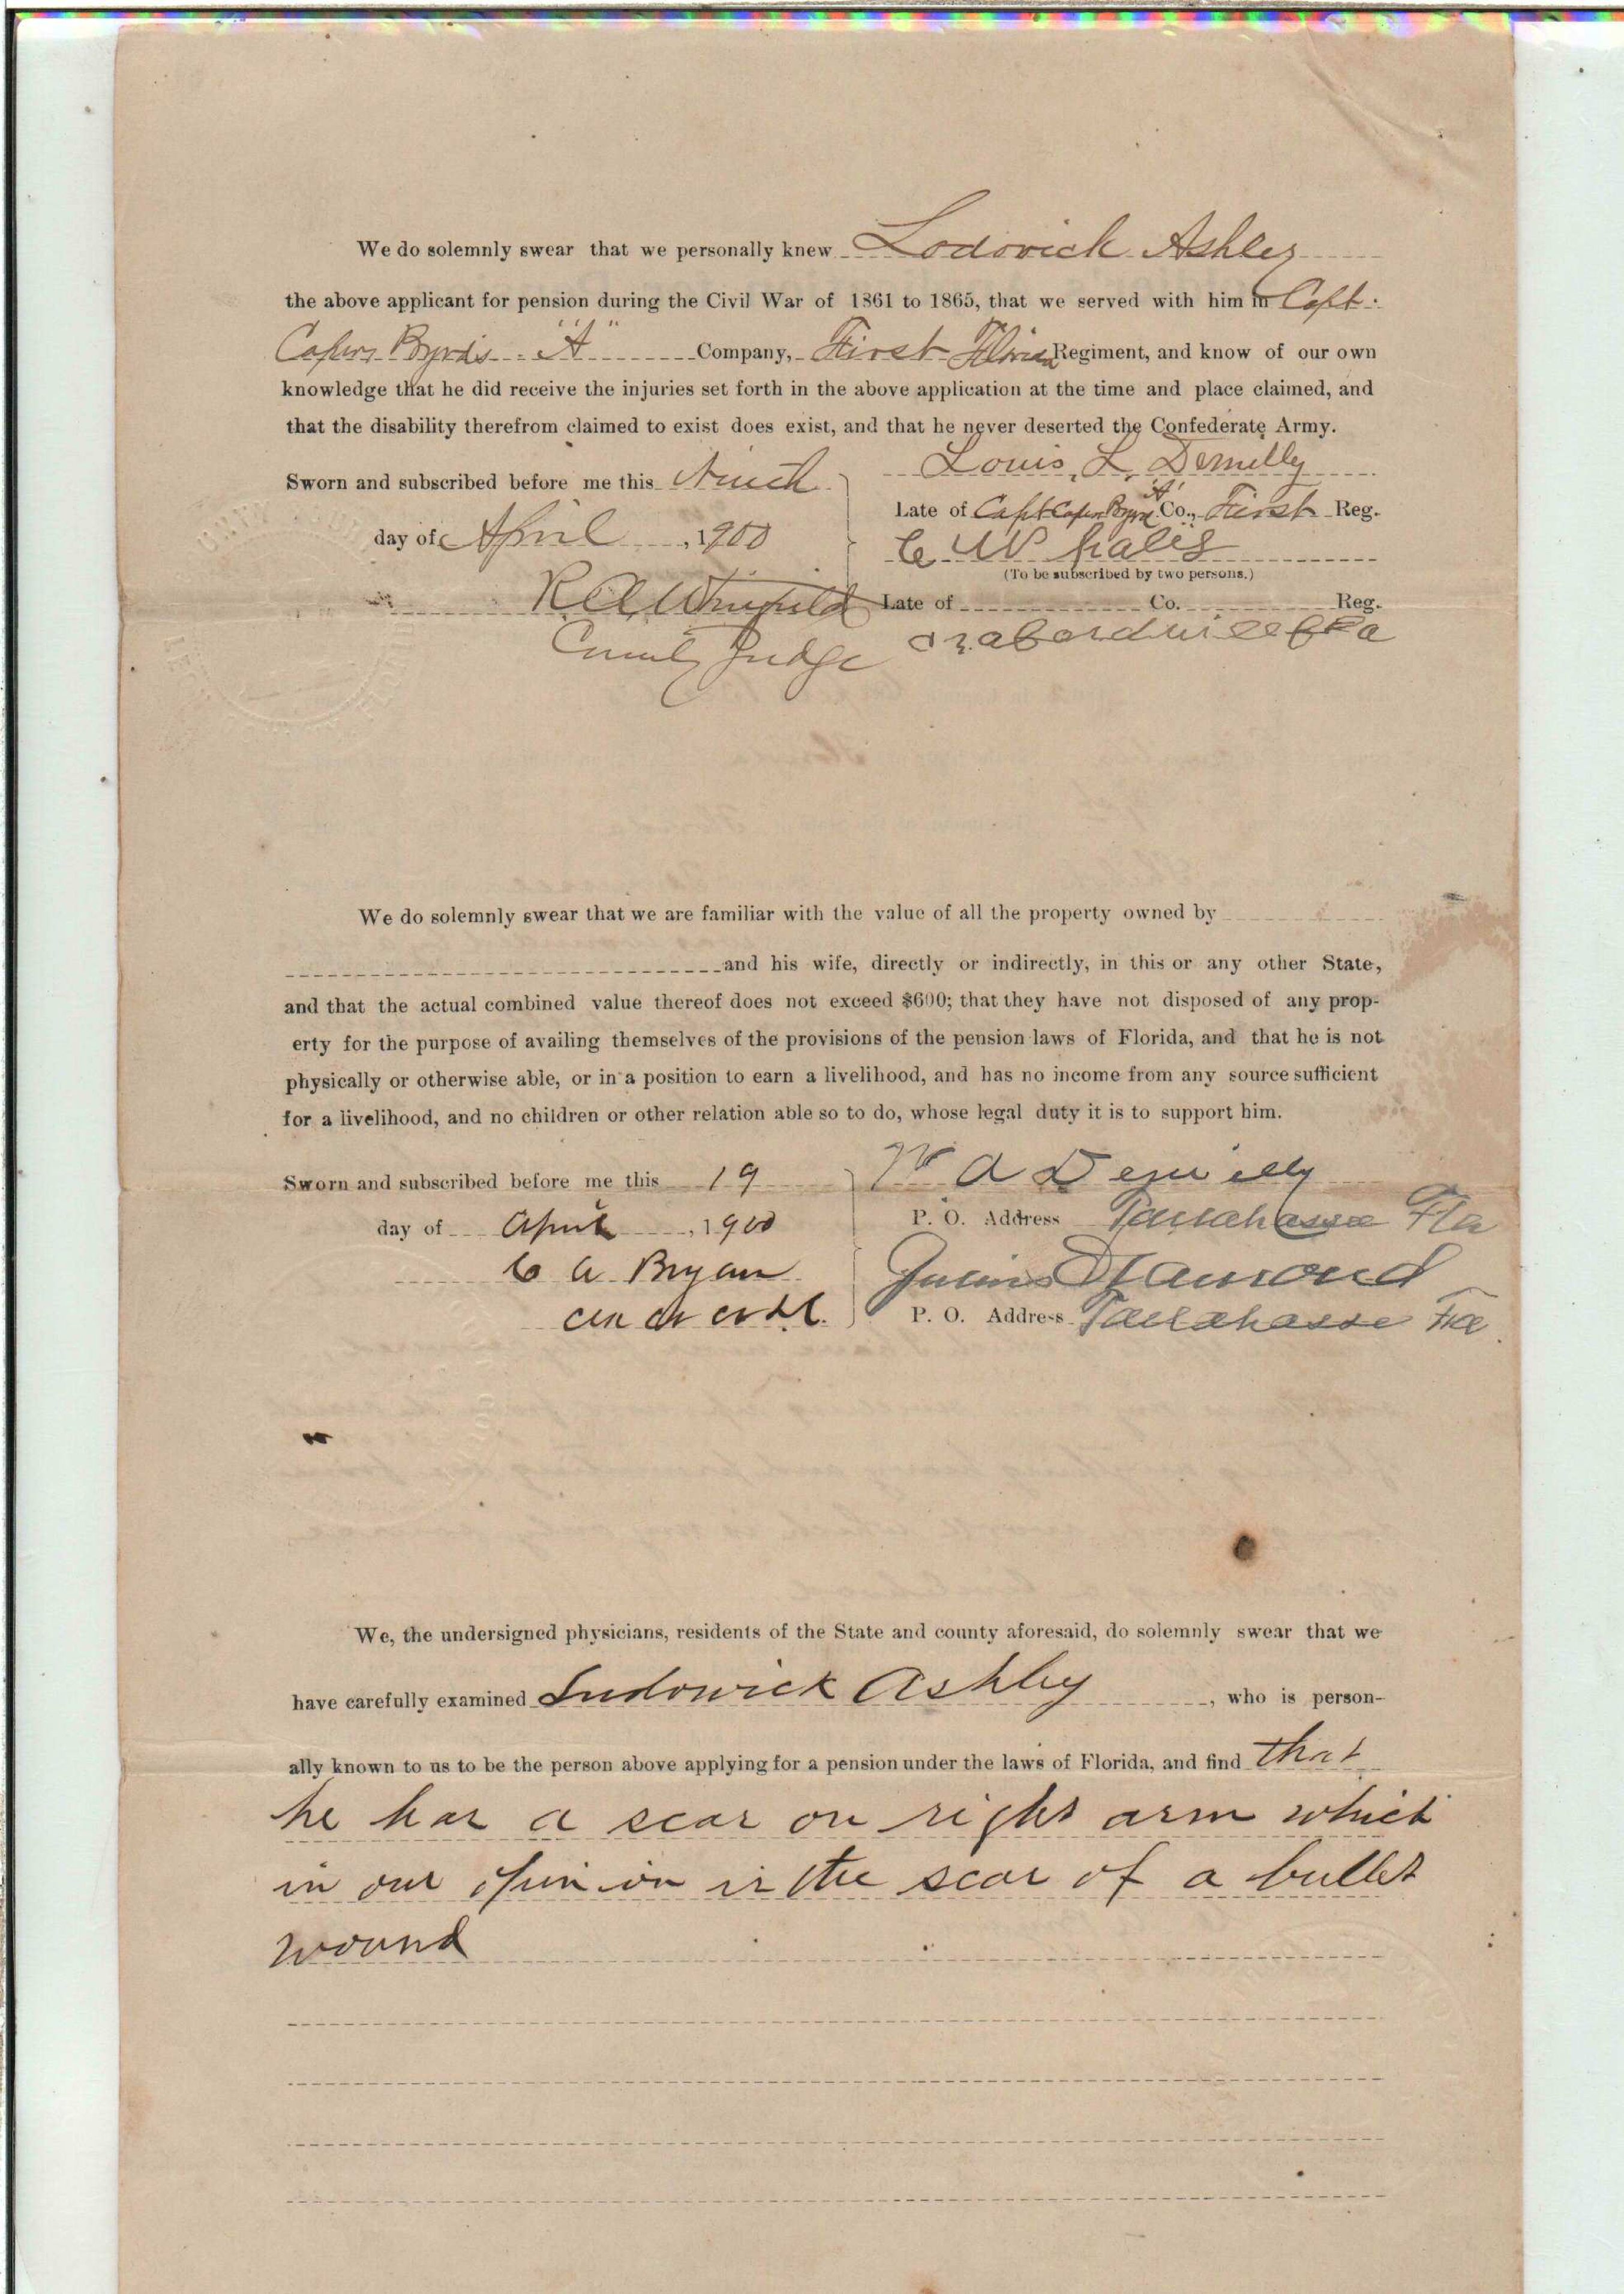 We do solemnly swear that we personally knew Lodovick Ashley
the above applicant for pension during the Civil War of 1861 to 1865, that we served with him in Capt.
Capers Byrds "A" Company, First Florida Regiment, and know of our own
knowledge that he did receive the injuries set forth in the above application at the time and place claimed, and
that the disability therefrom claimed to exist does exist, and that he never deserted the Confederate Army.
Louis L. Demilly
Sworn and subscribed before me this Ninth
Late of Capt Capers Byrd "A" Co., First Reg.
day of April, 1900
C W
(To be subscribed by two persons.)
R A Whitfield
Late of Co. Reg.
County Judge
We do solemnly swear that we are familiar with the value of all the property owned by
and his wife, directly or indirectly, in this or any other State,
and that the actual combined value thereof does not exceed $600; that they have not disposed of any prop-
erty for the purpose of availing themselves of the provisions of the pension laws of Florida, and that he is not
physically or otherwise able, or in a position to earn a livelihood, and has no income from any source sufficient
for a livelihood, and no children or other relation able so to do, whose legal duty it is to support him.
Sworn and subscribed before me this 19
A Demilly
day of April, 1900
P. O. Address Tallahassee Fla
C A Bryan
Julius Diamond
P. O. Address Tallahassee Fla
We, the undersigned physicians, residents of the State and county aforesaid, do solemnly swear that we
have carefully examined Ludowick Ashley, who is person-
ally known to us to be the person above applying for a pension under the laws of Florida, and find that
he has a scar on right arm which
in our opinion is the scar of a bullet
wound